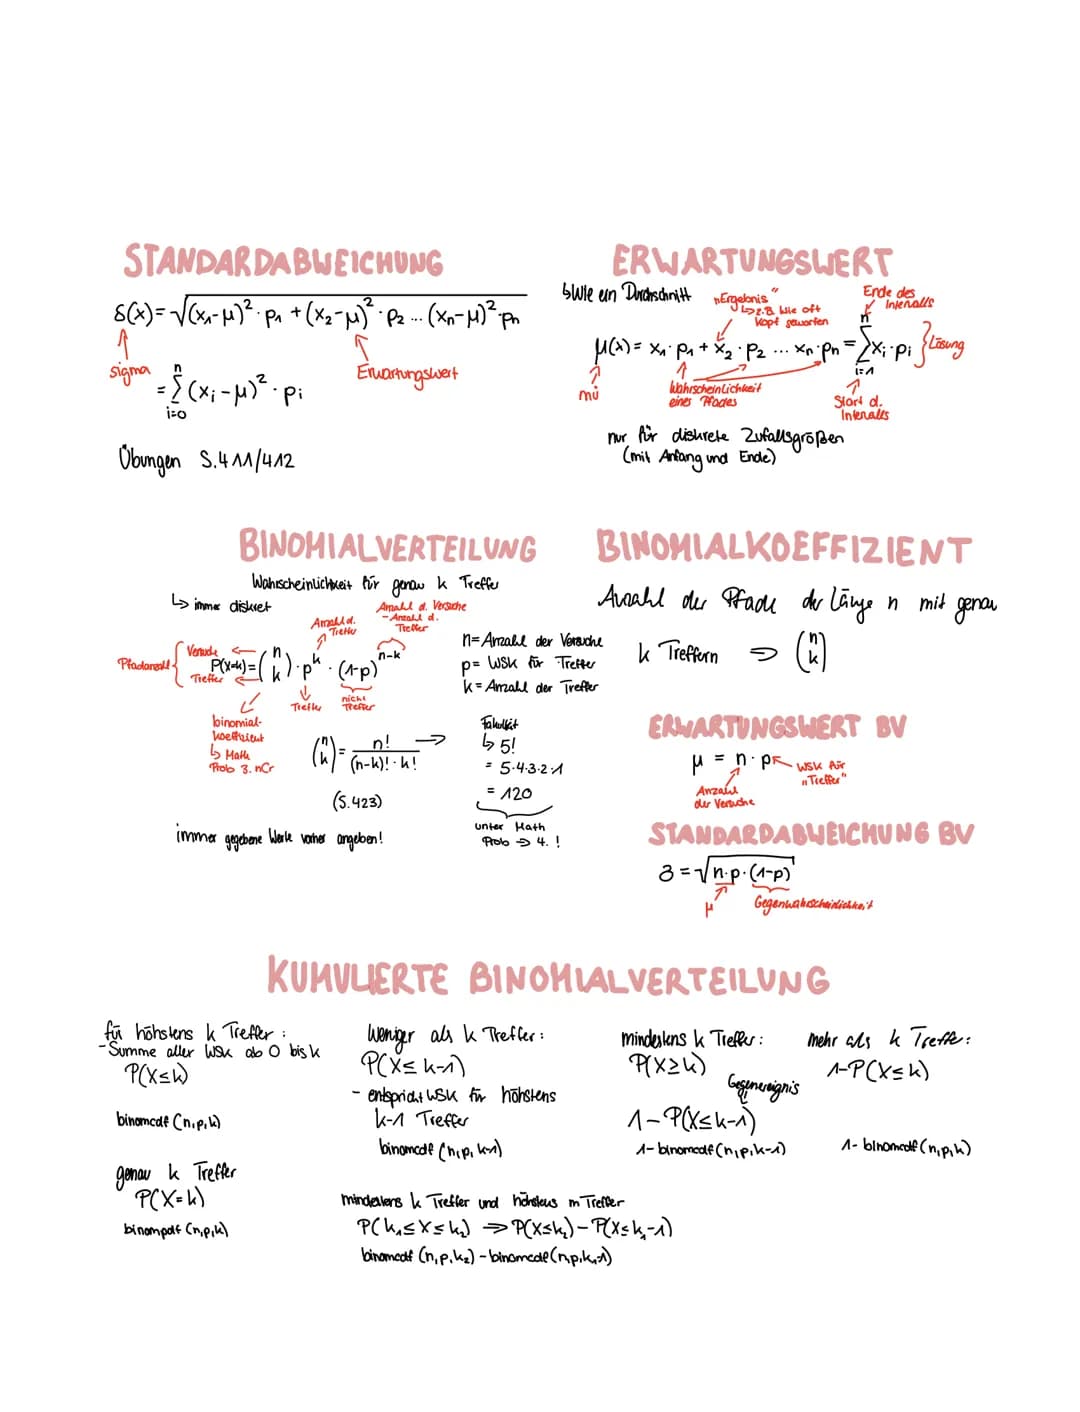 STANDARDABWEICHUNG
δ(x)=√(x₁-μ)²·p₁+(x₂-μ)²·p₂...(xₙ-μ)²·pₙ
sigma
=∑(xᵢ-μ)²·pᵢ
n
i=0
Erwartungswert
Übungen S.411/412
ERWARTUNGSWERT
↳Wie ein Durchschnitt
„Ergebnis“
↳z.B. Wie oft
Kopf geworfen
Ende des
Intervalls
μ(x)= x₁·p₁+x₂·p₂...xₙ·pₙ=∑xᵢ·pᵢ } Lösung
n
i=1
mü
Wahrscheinlichkeit
eines Pfades
Start d.
Intervalls
nur für diskrete Zufallsgrößen
(mit Anfang und Ende)
BINOMIALVERTEILUNG
Wahrscheinlichkeit für genau k Treffer
↳ immer diskret
Anzahl d.
Treffer
Anzahl d. Versuche
-Anzahl d.
Treffer
Pfadanzahl {
Versuche ←
Treffer ←
P(X=k)=(n k)·pᵏ·(1-p)ⁿ⁻ᵏ
Treffer
nicht
Treffer
binomial-
koeffizient
↳ Math
Prob 3. nCr
n=Anzahl der Versuche
p= WSK für Treffer
k=Anzahl der Treffer
(n k)= n!/(n-k)!·k! →
(S.423)
Fakultät
↳ 5!
= 5·4·3·2·1
= 120
unter Math
Prob → 4. !
immer gegebene Werte vorher angeben!
BINOMIALKOEFFIZIENT
Anzahl der Pfade der Länge n mit genau
k Treffern ⇒ (n k)
ERWARTUNGSWERT BV
μ = n·p
WSK für
„Treffer“
Anzahl
der Versuche
STANDARDABWEICHUNG BV
δ=√n·p·(1-p)
μ
Gegenwahrscheinlichkeit
KUMULIERTE BINOMIALVERTEILUNG
für höhstens k Treffer:
-Summe aller WSK ab 0 bis k
P(X≤k)
binomcdf(n,p,k)
genau k Treffer
P(X=k)
binompdf(n,p,k)
Weniger als k Treffer:
P(X≤k-1)
- entspricht WSK für höhstens
k-1 Treffer
binomcdf(n,p,k-1)
mindestens k Treffer:
P(X≥k)
Gegenereignis
1-P(X≤k-1)
1-binomcdf(n,p,k-1)
mehr als k Treffer:
1-P(X≤k)
1-binomcdf(n,p,k)
mindestens k Treffer und höhstens m Treffer
P(k₁≤X≤k₂) ⇒ P(X≤k₂)-P(X≤k₁-1)
binomcdf(n,p,k₂)-binomcdf(n,p,k₁-1)